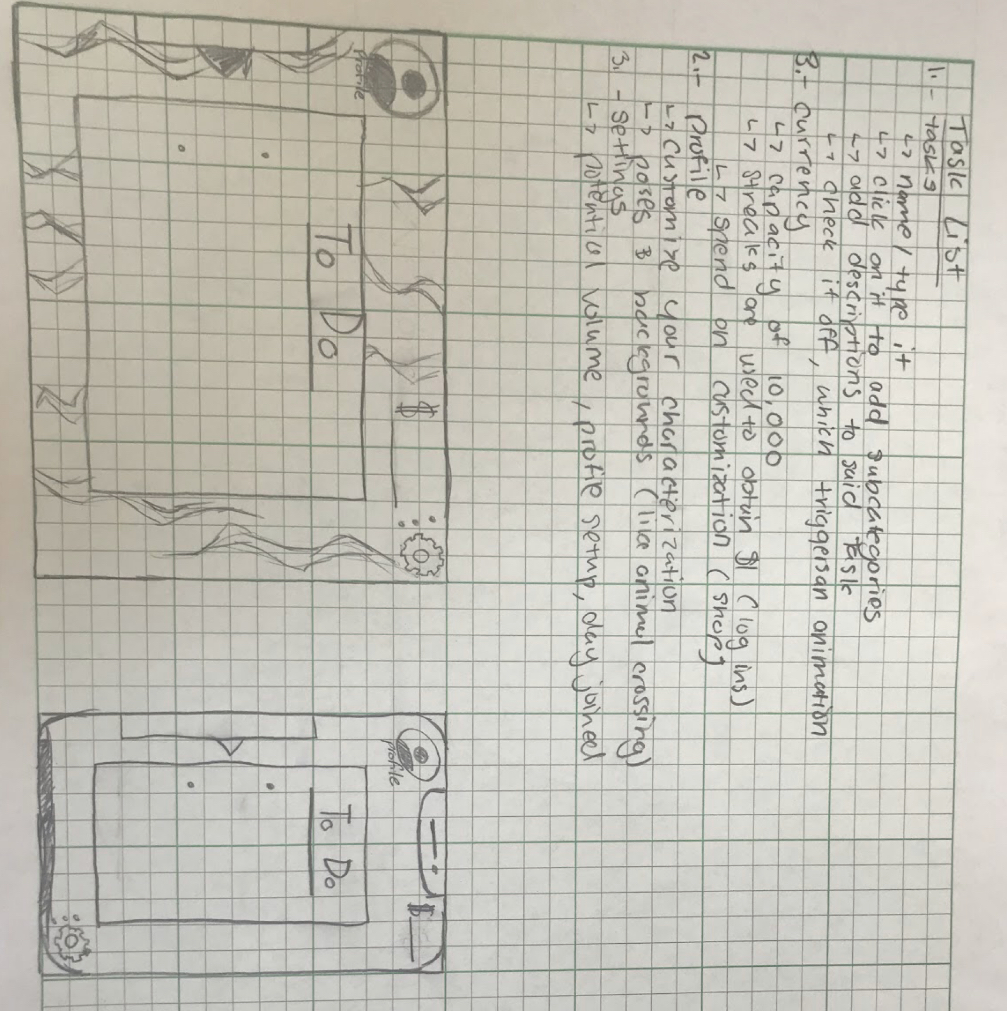 Task List
1.- tasks
↳ name/type it
↳ click on it to add subcategories
↳ add descriptions to said task
↳ check it off, which triggers an animation
3.- currency
↳ capacity of 10,000
↳ streaks are used to obtain $ (log ins)
↳ spend on customization (shop)
2.- Profile
↳ customize your characterization
↳ poses & backgrounds (like animal crossing)
3.- settings
↳ potential volume, profile setup, day joined
profile
$
To Do
profile
$
To Do